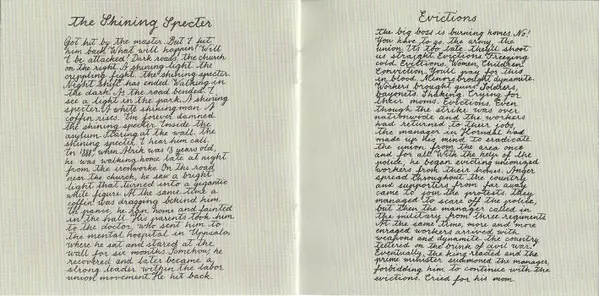 the Shining Specter
Got hit by the master. But I hit
him back. What will happen? Will
I be attacked? Dark road, the church
on the right. A shining light, the
crippling fight, the shining specter.
Night shift has ended. Walking in
the dark. At the road bended. I
see a light in the park. A shining
specter. A white shining man. A
coffin rises. I'm forever damned
the shining specter. Inside the
asylum. Staring at the wall. the
shining specter. I hear him call.
In 1888, when Alrik was 13 years old,
he was walking home late at night
from the ironworks. On the road
near the church, he saw a bright
light that turned into a gigantic
white figure. At the same time a
coffin was dragging behind him.
In panic, he ran home and fainted
in the hall. His parents took him
to the doctor, who sent him to
the mental hospital in Uppsala,
where he sat and stared at the
wall for six months. Somehow, he
recovered and later became a
strong leader within the labor
union movement. He hit back.
Evictions
the big boss is burning homes. No!
You have to go. the army, the
union. It's too late. they'll shoot
us straight. Evictions. Freezing
cold. Evictions. Women, children.
Conviction. You'll pay for this
in blood. Miners brought dynamite.
Workers brought guns. Soldiers,
bayonets. Shaking. Crying for
their moms. Evictions. Even
though the strike was over
nationwide and the workers
had returned to their jobs,
the manager in
made up his mind to eradicate
the union from the area once
and for all. With the help of the
police, he began evicting unionized
workers from their homes. Anger
spread throughout the country
and supporters from far away
came to join the protest. they
managed to scare off the police,
but then the manager called in
the military from three regiments.
At the same time, more and more
enraged workers arrived with
weapons and dynamite. the country
teetered on the brink of civil war.
Eventually, the king reacted and the
prime minister summoned the manager,
forbidding him to continue with the
evictions. Cried for his mom.